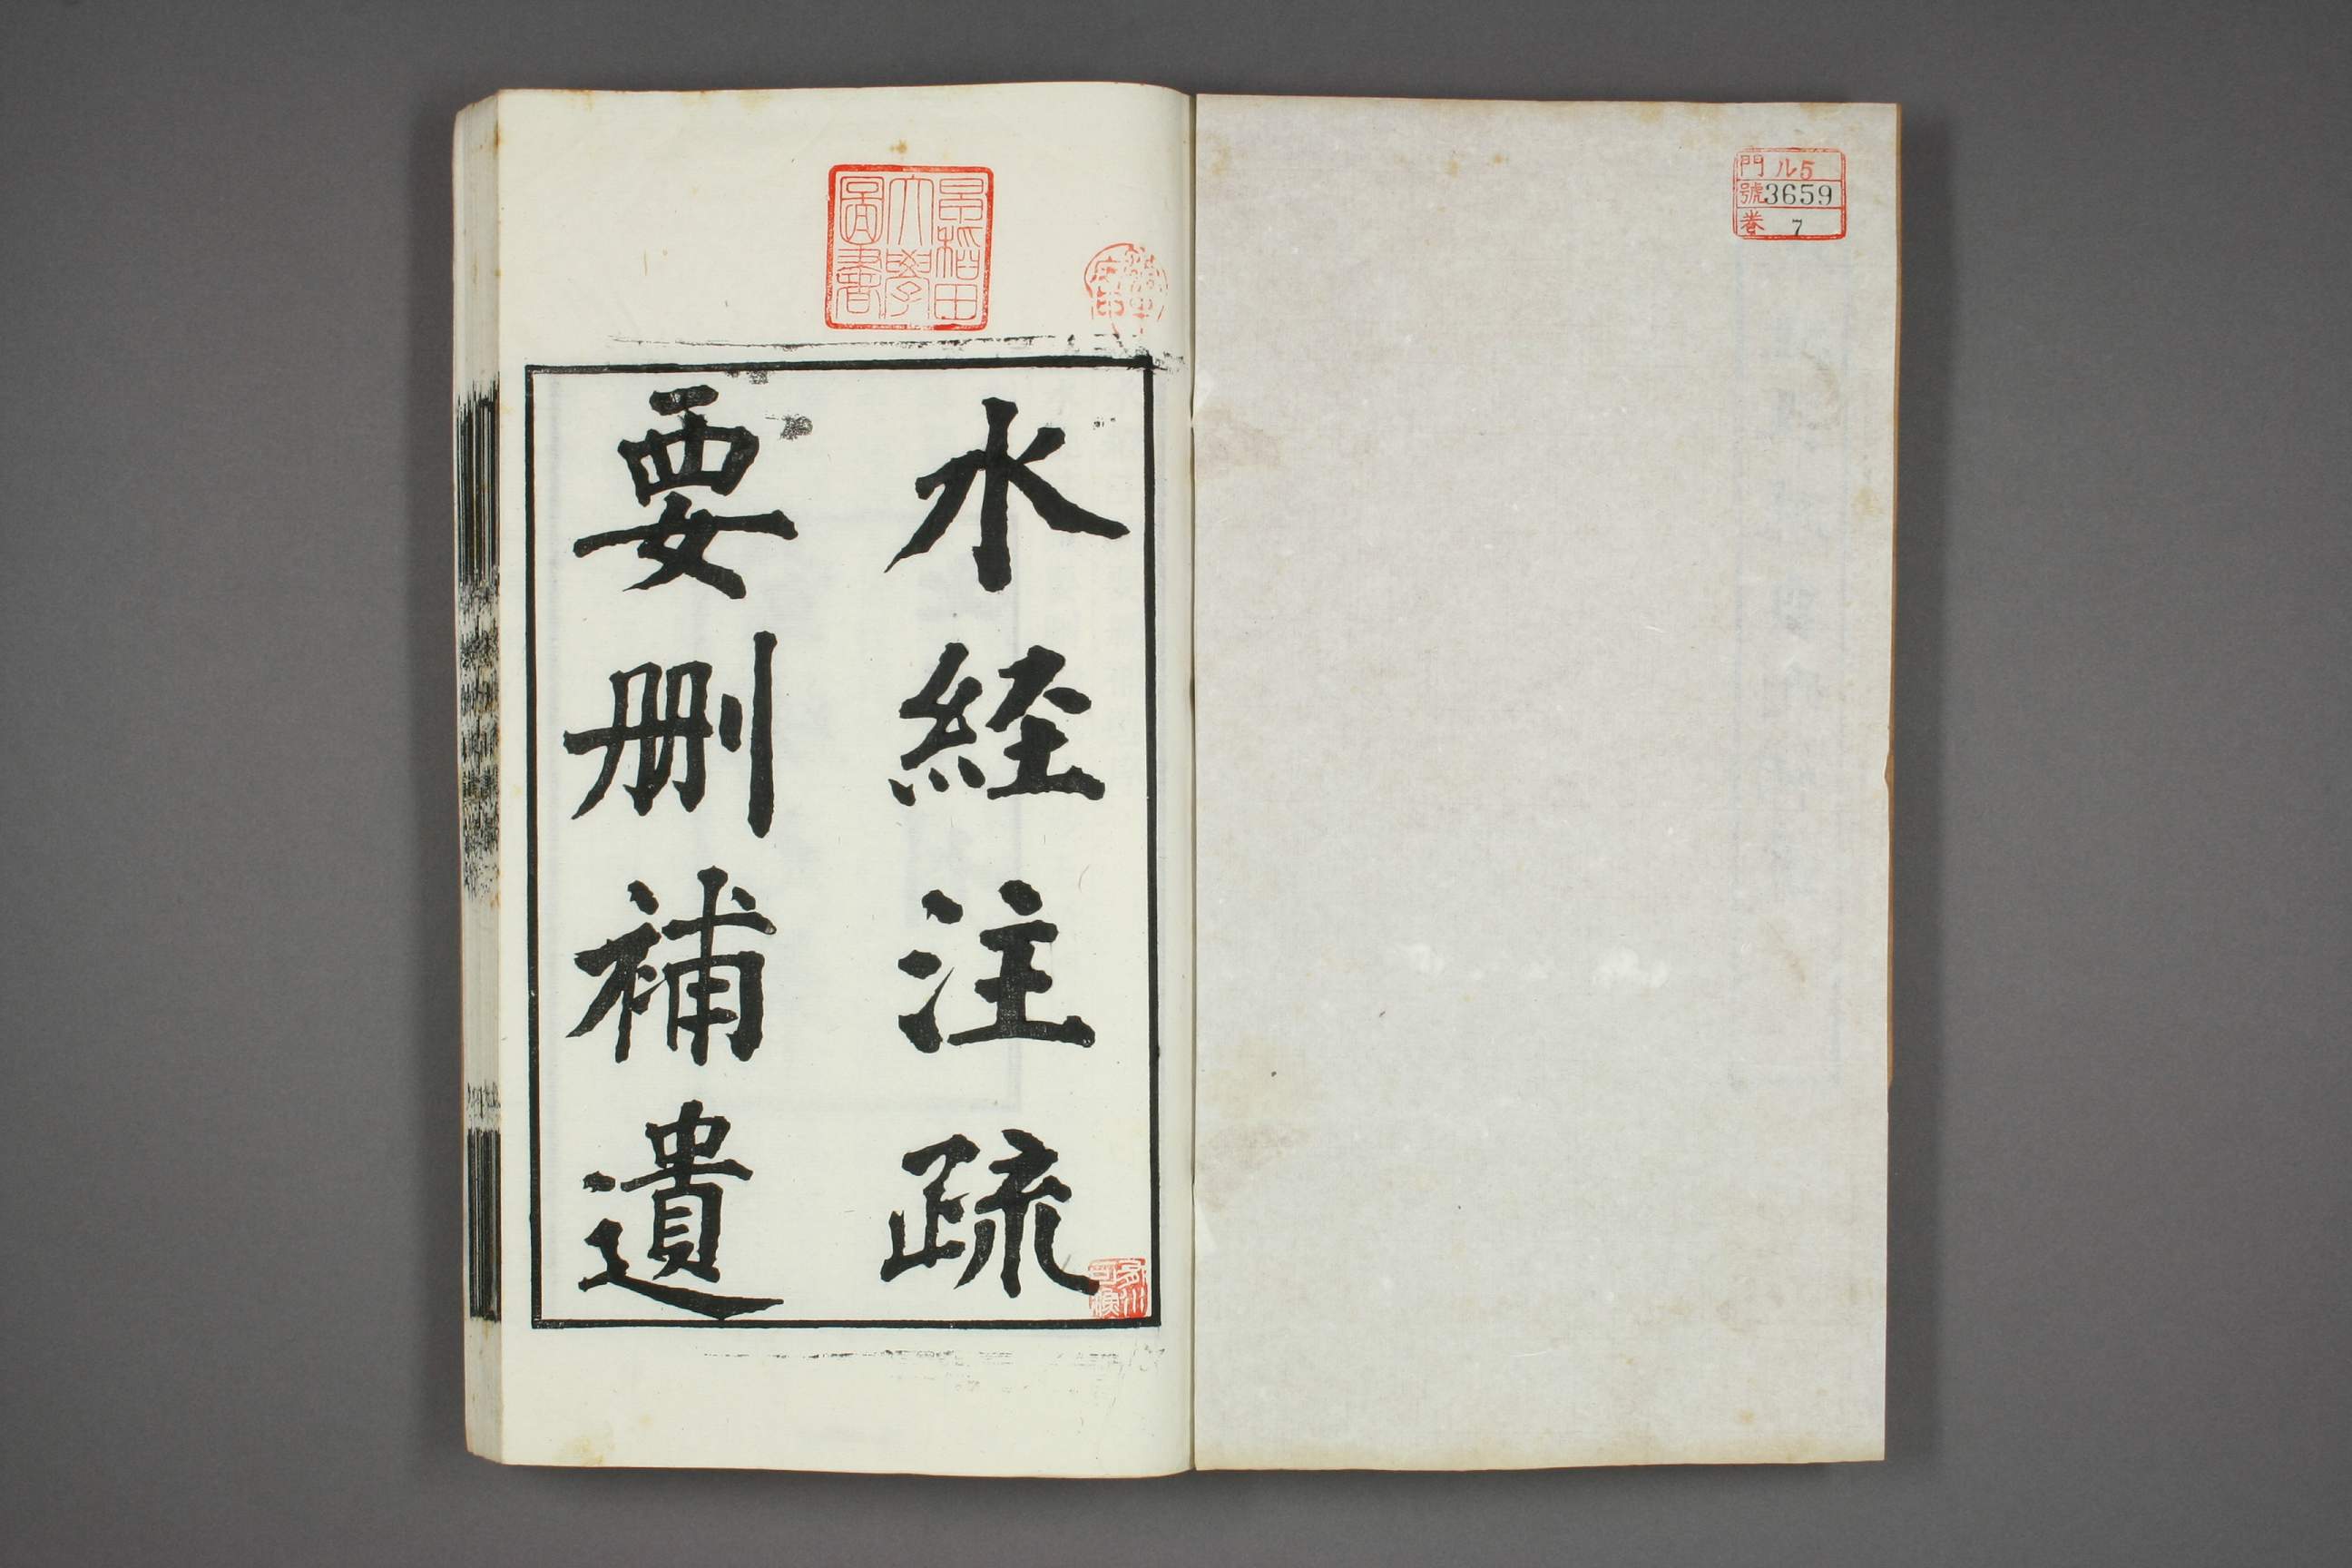 門 ル5
號 3659
巻 7
早稲田
大學
圖書
水経注疏
要删補遺